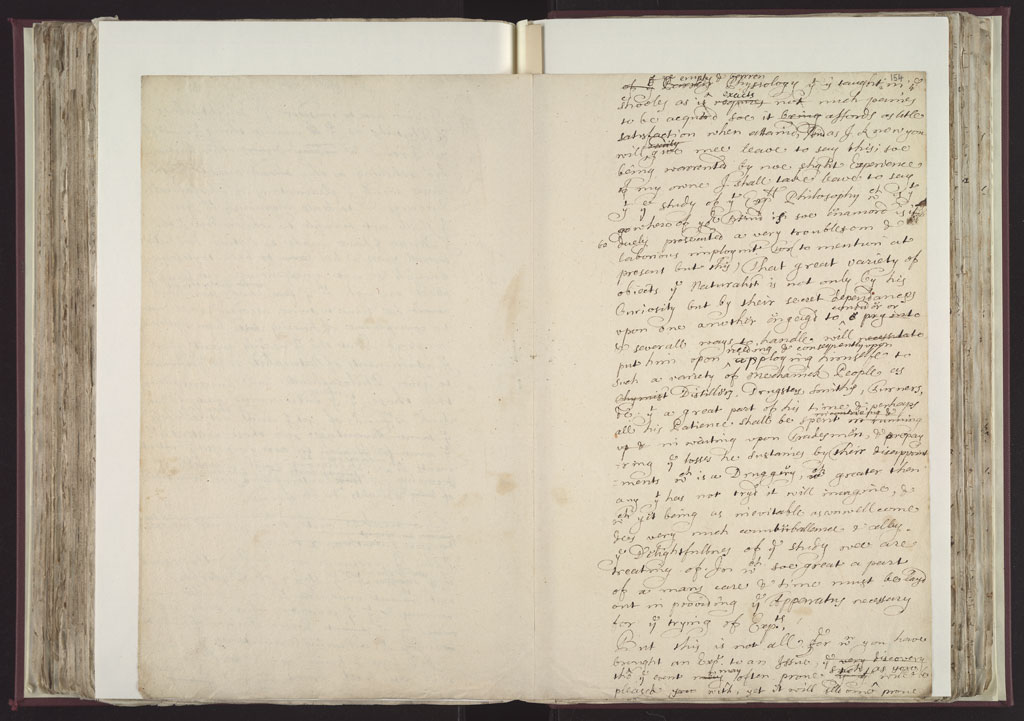 154
of yt empty & barren
Physiology yt is taught in ye
Schooles as it requires exacts not much paines
to be acquird soe it being affords as little
satisfaction when attaind, as I know you
will easily give mee leave to say this; soe
being warranted by noe slight Experience
of my owne I shall take leave to say
yt ye study of yt Expll Philosophy
whereof you are soe enamord is if
duely prosecuted a very troublesom &
laborious imployment for (to mention at
present but this) That great variety of
objects ye Naturalist is not only by his
Curiosity but by their secret dependances
upon one another ingag'd to consider or pry into
& severall ways to handle will necessitate
put him upon needing, & consequently upon
applying himselfe to
such a variety of Mechanick People as
Chymist Distillers, Drugsters, Smiths, Turners,
&c yt a great part of his time & perhaps
all his Patience shall be spent in running
up & in waiting upon Tradesmen, & repay
-ring ye losses he sustaines by their disappoint
-ments wch is a Druggery, greater then
any yt has not try'd it will imagine, &
wch yet being as inevitable as unwellcome
dos very much counterballance & allay
ye Delightfullnes of ye study wee are
treating of. In wch soe great a part
of a mans care & time must be layd
out in providing ye Apparatus necessary
for ye trying of Expts.
But this is not all, For when you have
brought an Expt. to an Issue, very discovery
tho ye event may often prove such as you are
pleased with, yet it will prove